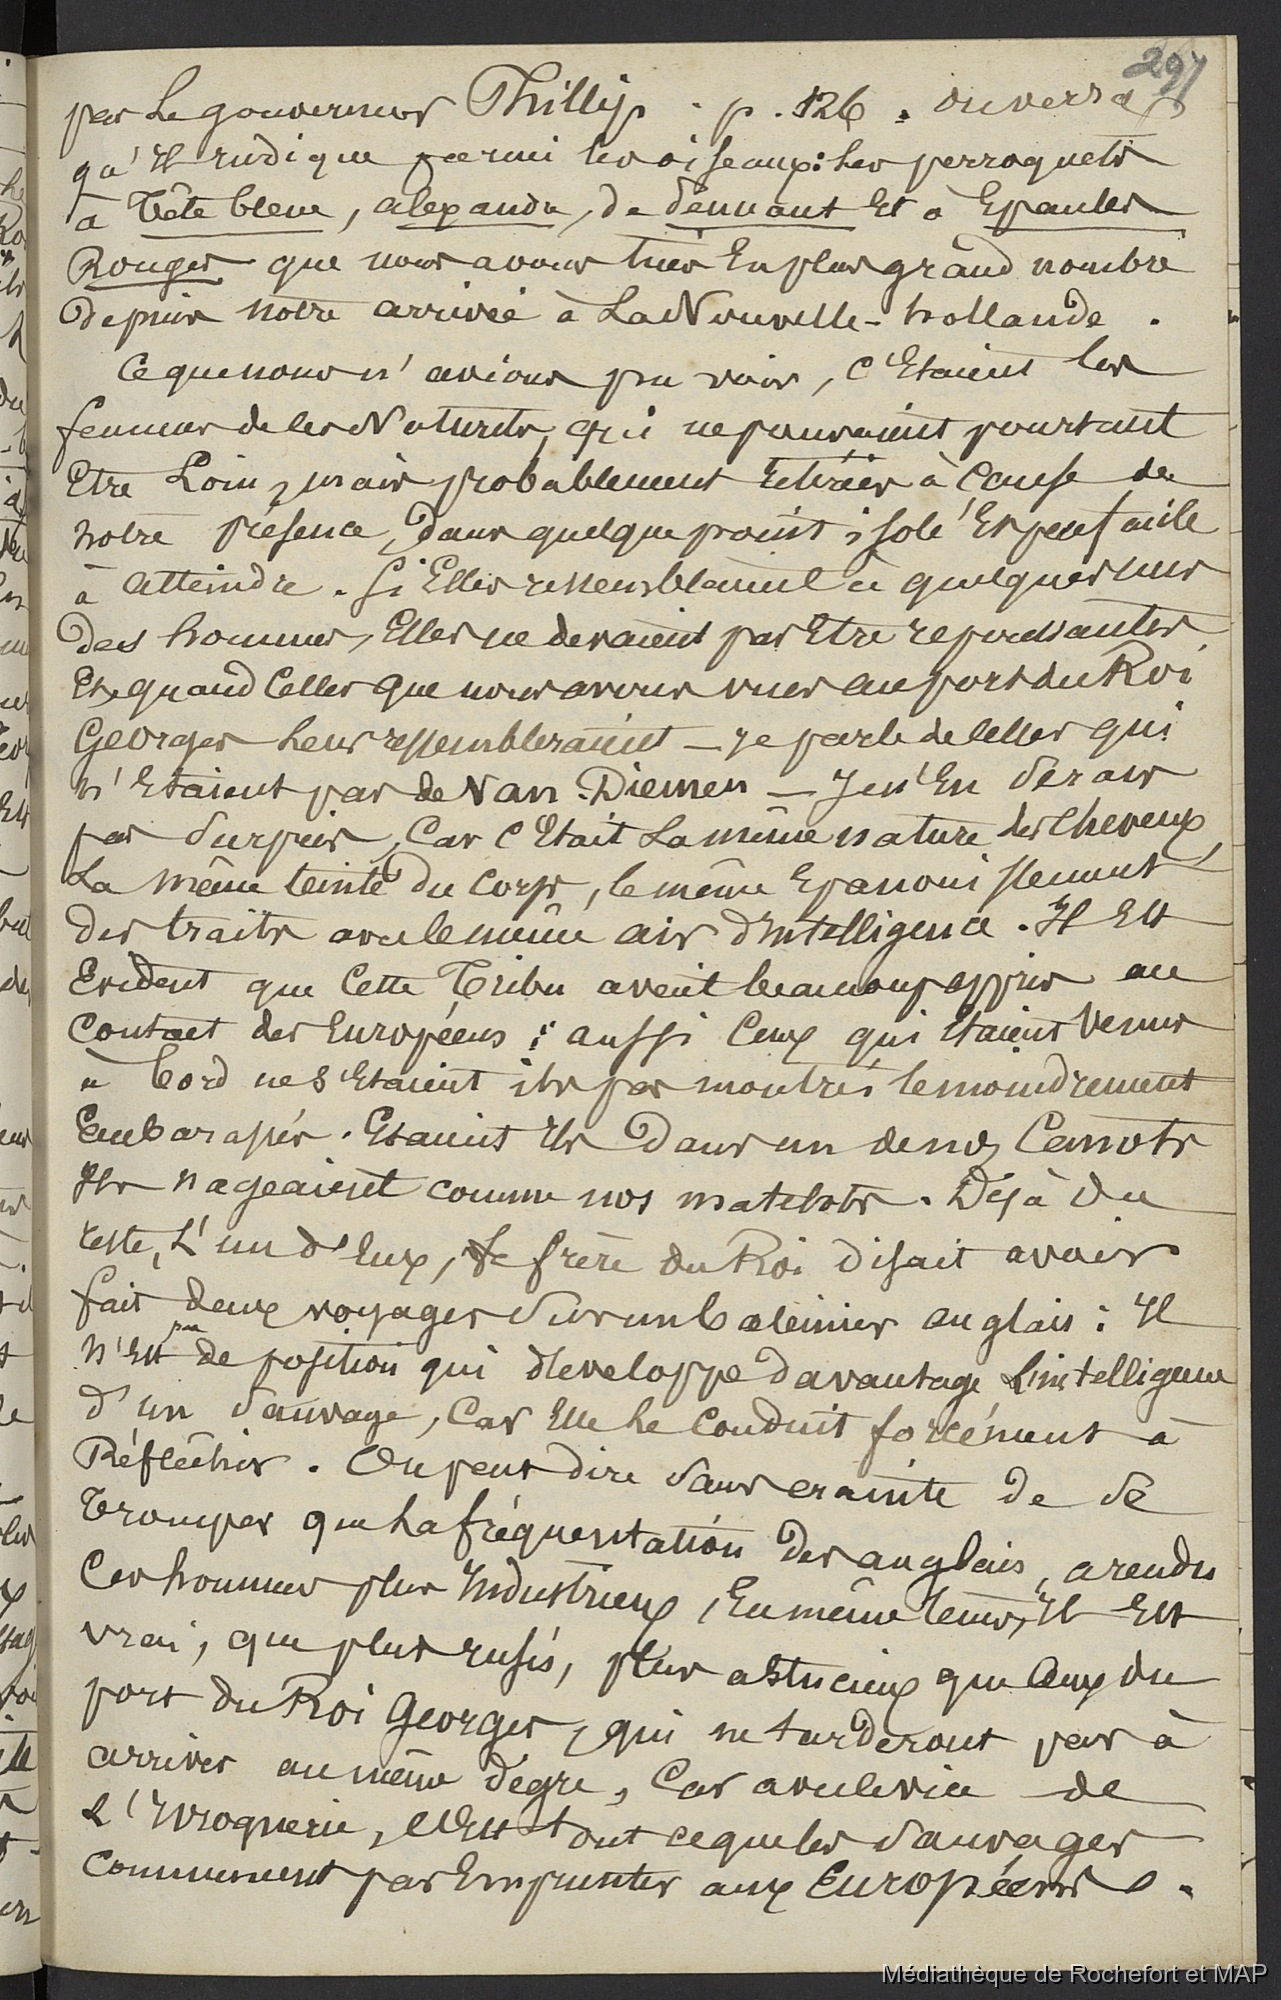 297
par Le gouverneur Phillip. p. 126. on verra
qu'Il Indique parmi les oiseaux: les perroquets
à Tête bleue, alexandre, de dennant Et à Epaules
Rouges que nous avons tués En plus grand nombre
depuis notre arrivée à La Nouvelle-hollande.
Ce que nous n'avions pu voir, c'Etaient les
femmes de ces Naturels, qui ne pouvaient pourtant
Etre Loin, mais probablement retirées à Cause de
notre présence, dans quelque point isolé Et peu facile
à atteindre. Si Elles ressemblaient à quelques uns
des hommes, Elles ne devaient pas Etre repoussantes
Et quand Celles que nous avons vues au port du Roi
Georges leur ressembleraient — je parle de celles qui
n'Etaient pas de Van-Diemen — Je n'En serais
pas surpris, Car c'Etait La même nature des cheveux,
La même teinte du Corps, le même Epanouissement
des traits avec le même air d'Intelligence. Il Est
Evident que Cette Tribu avait beaucoup appris au
Contact des Européens; aussi Ceux qui Etaient Venus
à bord ne s'Etaient ils pas montrés le moindrement
Embarassés. Etaient Ils dans un de nos Canots
Ils nageaient comme nos matelots. Déjà du
reste, L'un d'Eux, Le frère du Roi disait avoir
fait deux voyages sur un baleinier anglais: Il
n'Est pas de position qui développe davantage L'intelligence
d'un sauvage, Car Elle Le Conduit forcément à
Réfléchir. On peut dire sans crainte de se
Tromper que La fréquentation des anglais, a rendu
Ces hommes plus Industrieux, En même tems, Il Est
vrai, que plus rusés, plus astucieux que Ceux du
port du Roi Georges, qui ne tarderont pas à
arriver au même dégré, Car avec le vice de
L'Ivrognerie, c'Est tout ce que les sauvages
Commencent par Emprunter aux Européens.
Médiathèque de Rochefort et MAP